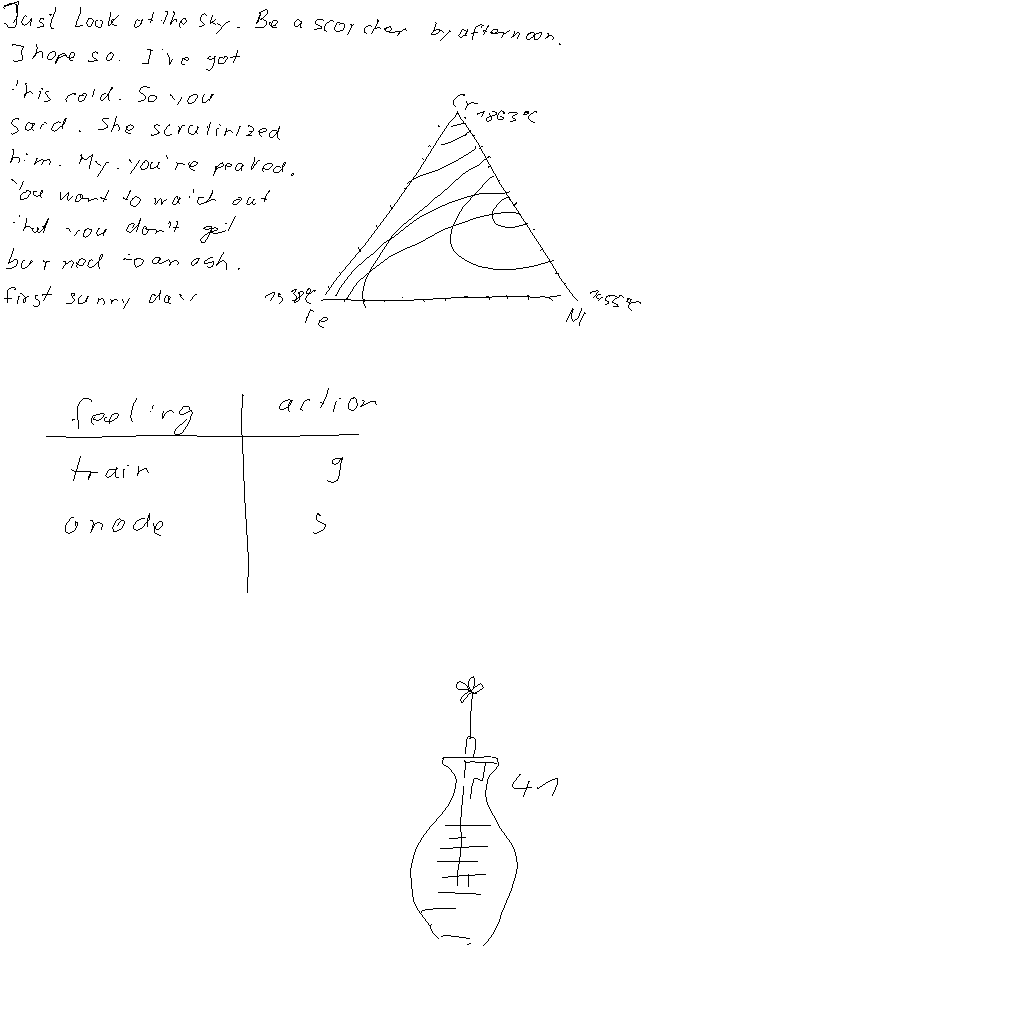 Just Look at the sky. Be a scorcher by afternoon.
I hope so. I've got
this cold. So you
said. She scrutinized
him. My. You're peaked.
You want to watch out
that you don't get
burned to an ash.
first sunny day
Cr
1863°C
1538°C
Fe
Ni
1455°C
feeling
action
train
g
anode
s
41